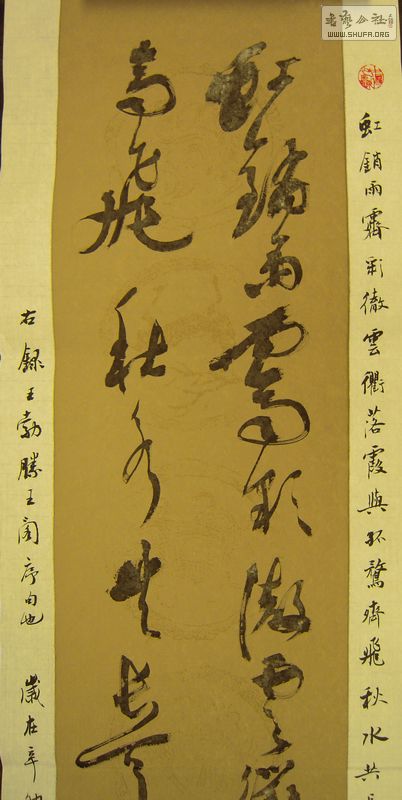 書藝公社
WWW.SHUFA.ORG
虹銷雨霽彩徹雲衢落霞與孤鶩齊飛秋水共
虹銷雨霽彩徹雲衢
齊飛秋水共長天
右錄王勃滕王閣序句也 歲在辛